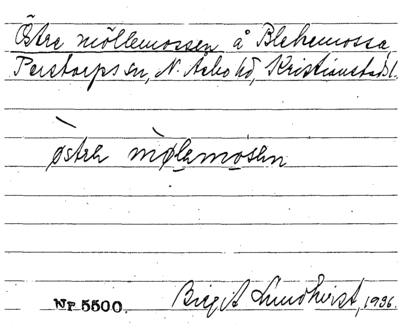 Östre möllemossen å Blekemossa,
Perstorps sn, N. Åsbo hd, Kristianstads l.
østrə mølemosən
Np. 5500. Birgit Lundkvist, 1936.